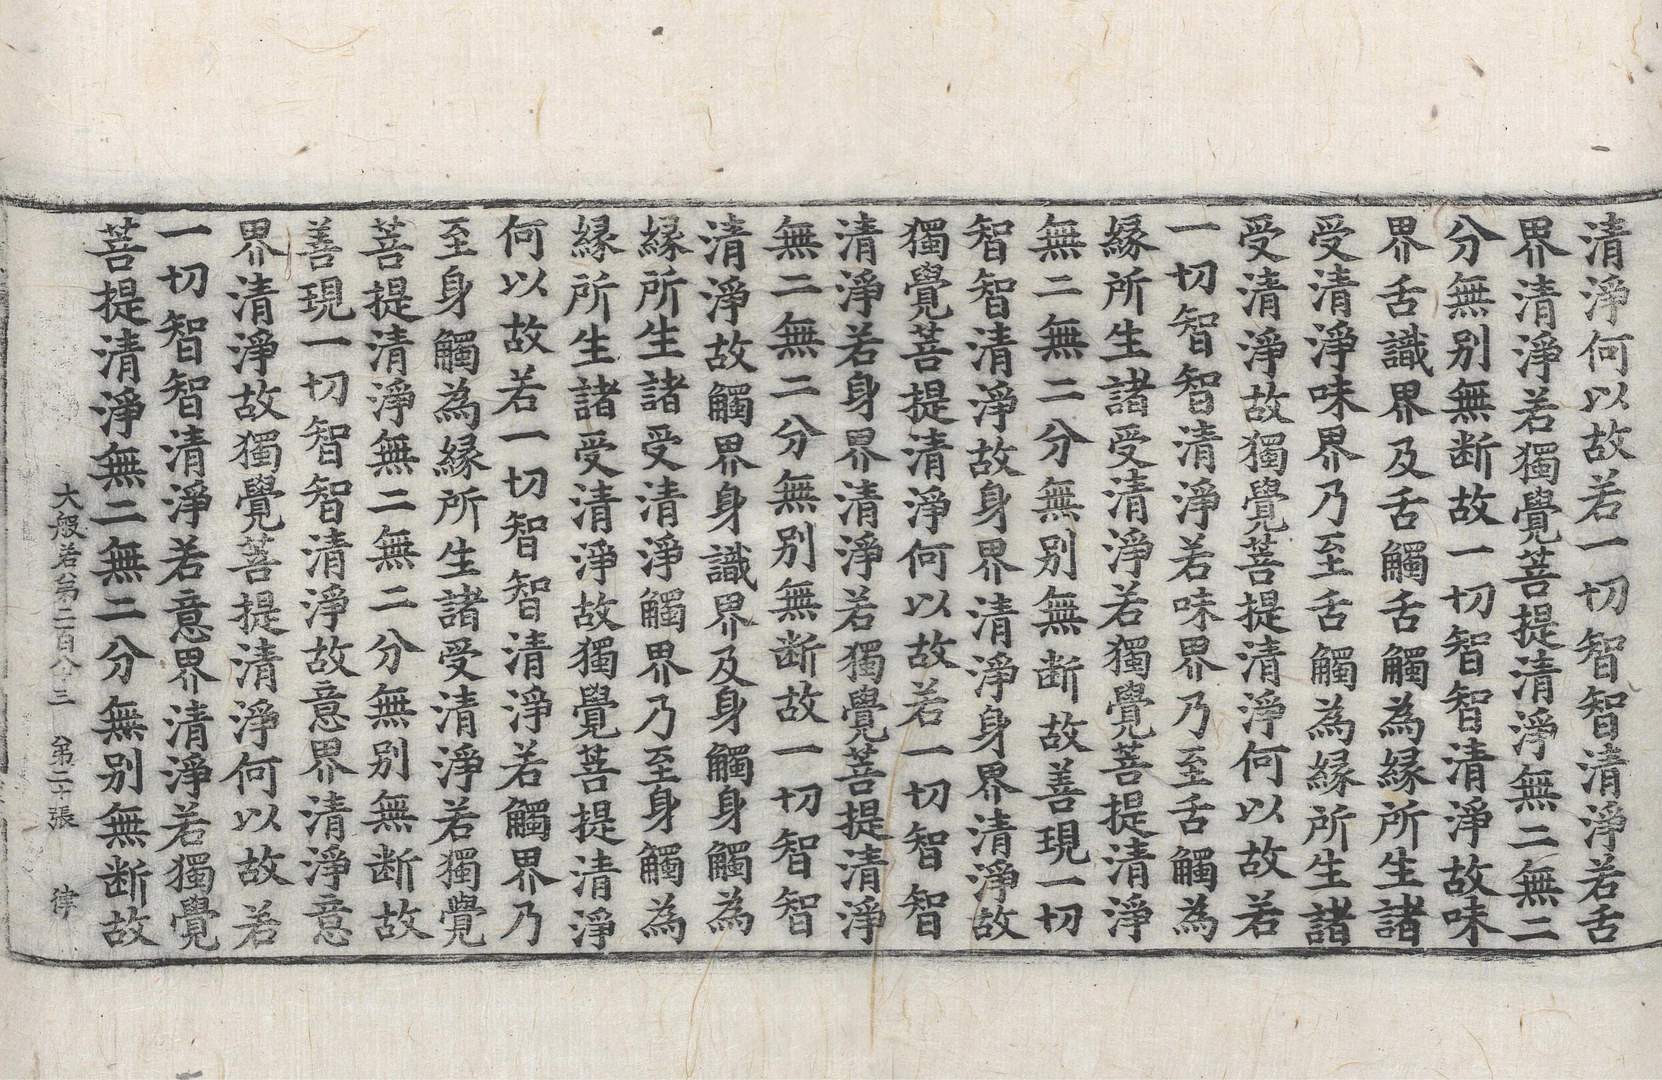 清淨何以故若一切智智清淨若舌
界清淨若獨覺菩提清淨無二無二
分無別無断故一切智智清淨故味
界舌識界及舌觸舌觸為縁所生諸
受清淨味界乃至舌觸為縁所生諸
受清淨故獨覺菩提清淨何以故若
一切智智清淨若味界乃至舌觸為
縁所生諸受清淨若獨覺菩提清淨
無二無二分無別無断故善現一切
智智清淨故身界清淨身界清淨故
獨覺菩提清淨何以故若一切智智
清淨若身界清淨若獨覺菩提清淨
無二無二分無別無断故一切智智
清淨故觸界身識界及身觸身觸為
縁所生諸受清淨觸界乃至身觸為
縁所生諸受清淨故獨覺菩提清淨
何以故若一切智智清淨若觸界乃
至身觸為縁所生諸受清淨若獨覺
菩提清淨無二無二分無別無断故
善現一切智智清淨故意界清淨意
界清淨故獨覺菩提清淨何以故若
一切智智清淨若意界清淨若獨覺
菩提清淨無二無二分無別無断故
大般若第二百八十三 第二十張 律